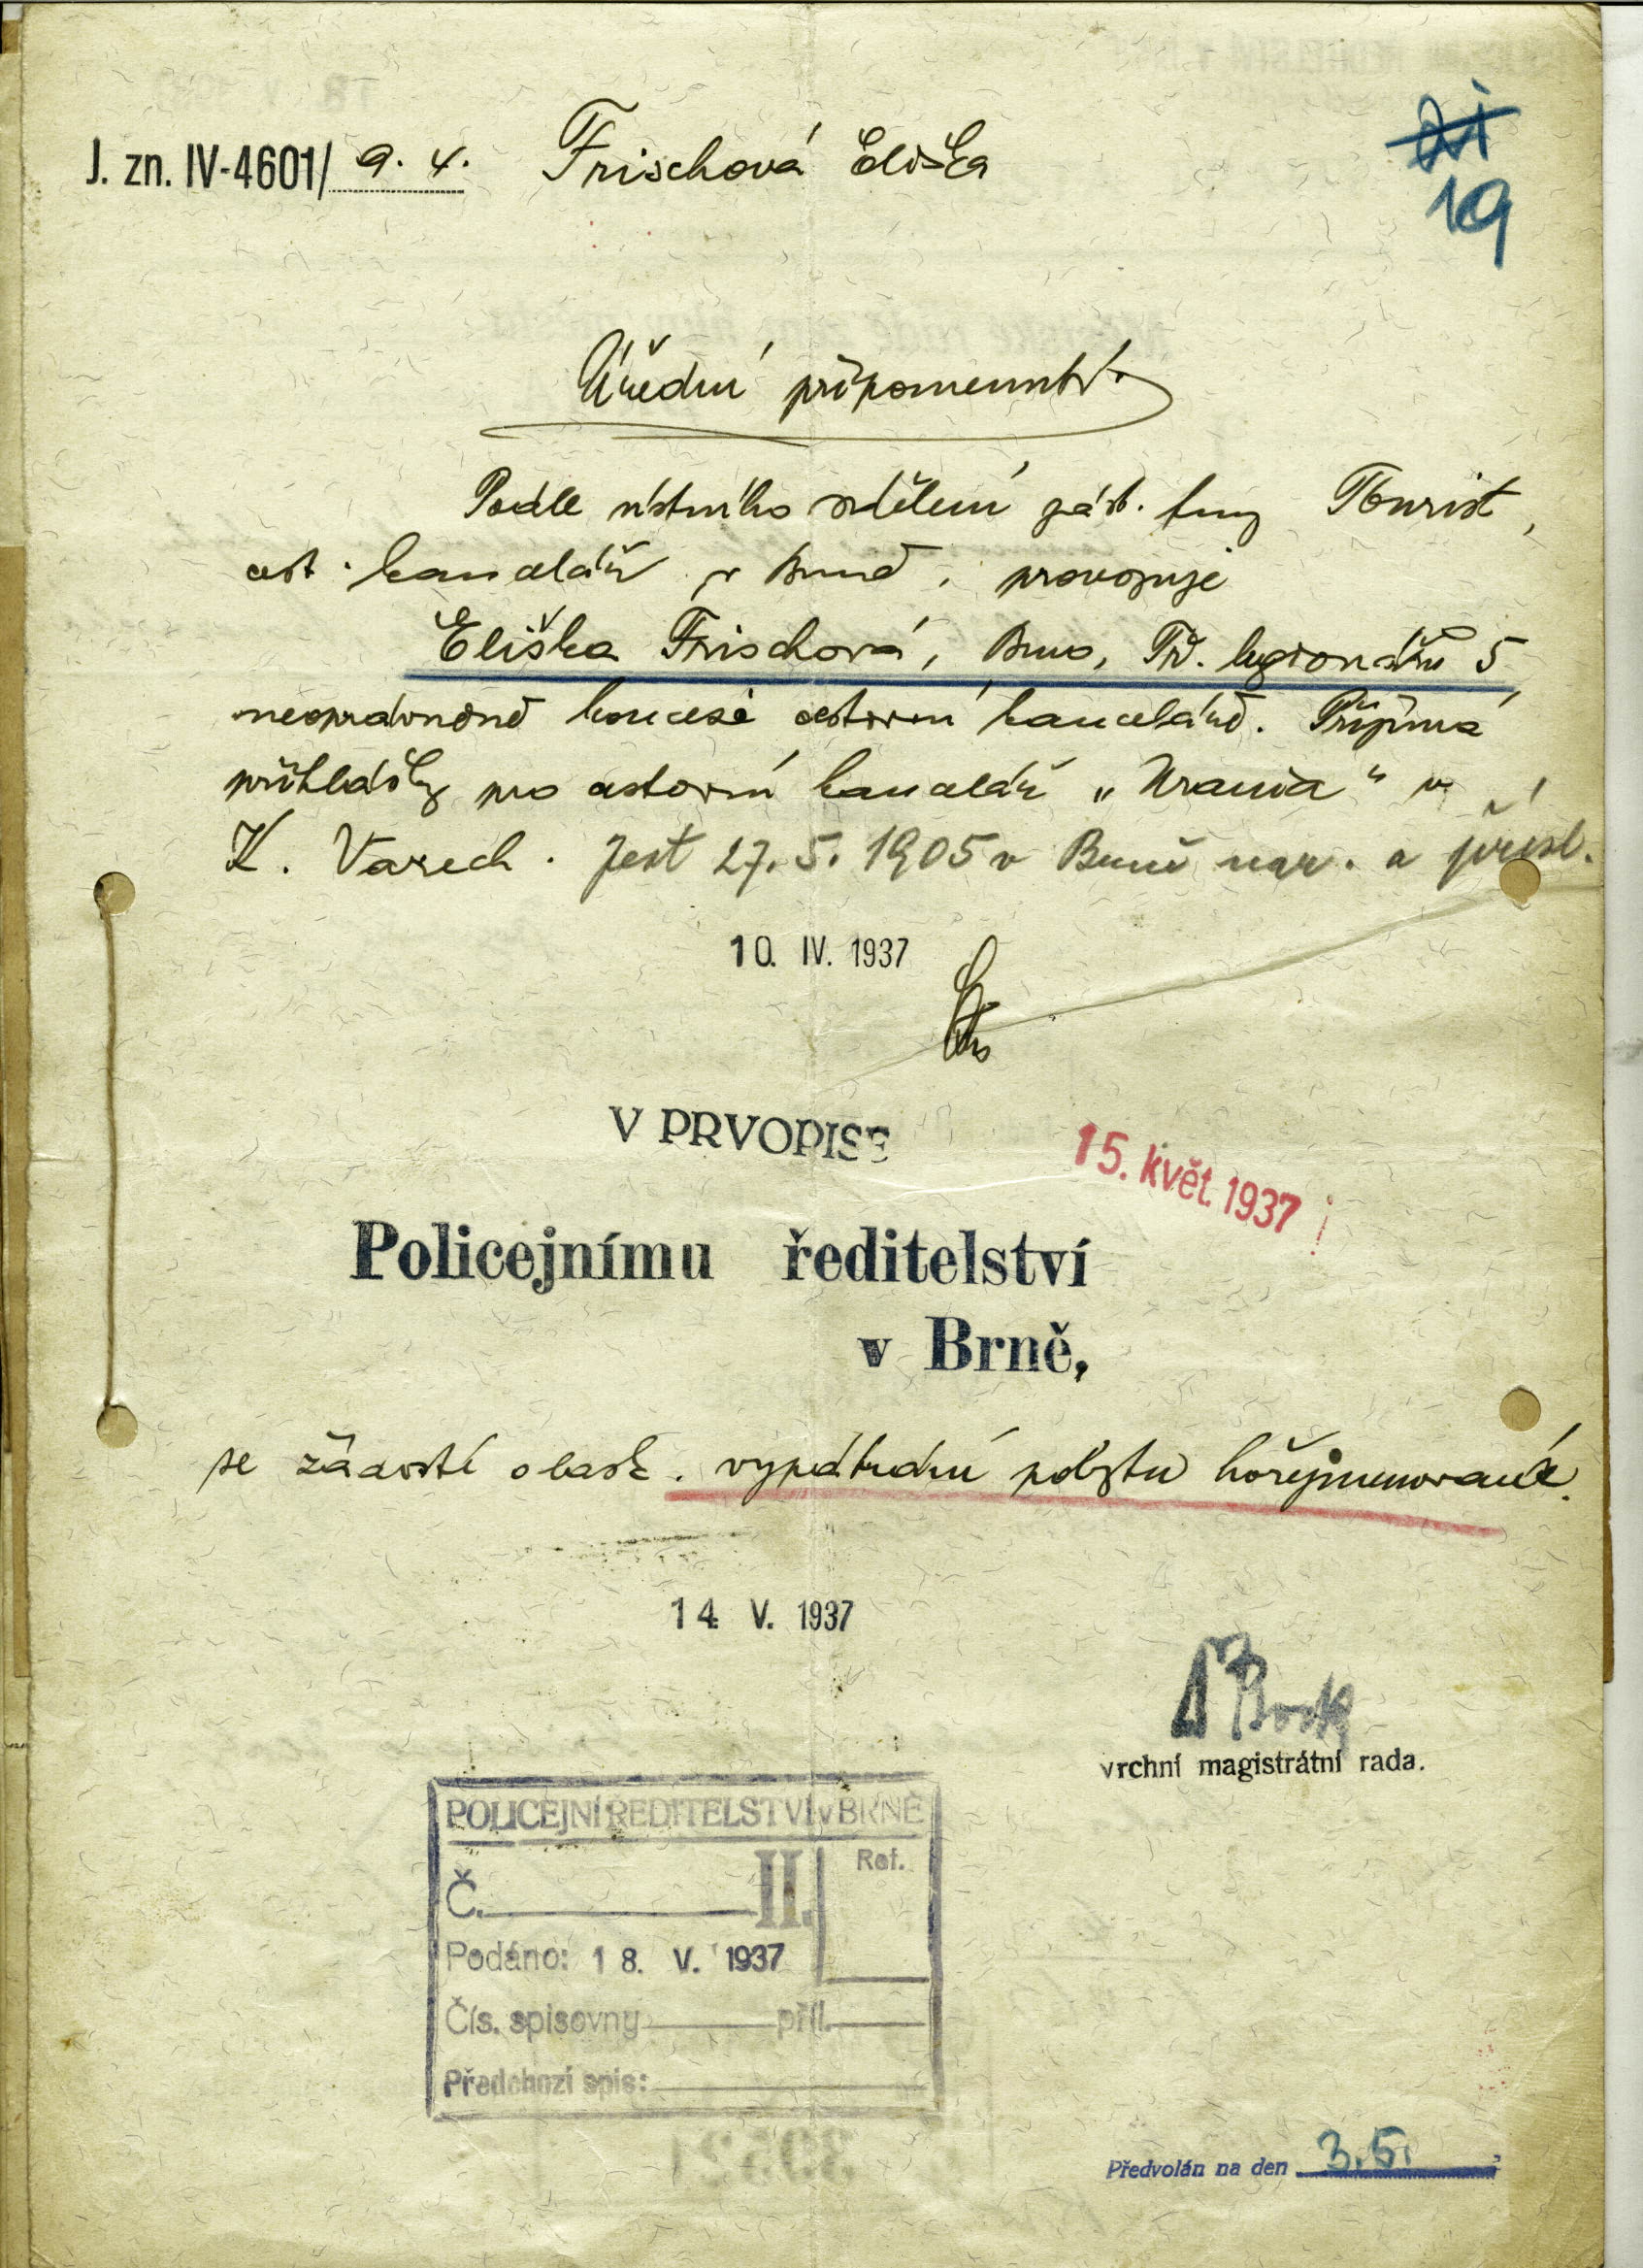 J. zn. IV-4601/ 9. 4. Frischová Eliška
19
Úřední připomenutí.
Podle ústního sdělení zást. fmy Tourist,
cest. kancelář v Brně, provozuje
Eliška Frischová, Brno, Tř. legionářů 5
neoprávněně koncesi cestovní kanceláře. Přijímá
přihlášky pro cestovní kancelář „Urania" v
K. Varech. Jest 27. 5. 1905 v Brně nar. a přísl.
10. IV. 1937
V PRVOPISE
15. květ. 1937
Policejnímu ředitelství
v Brně,
se žádostí o lask. vypátrání pobytu hořejmenované.
14. V. 1937
vrchní magistrátní rada.
POLICEJNÍ ŘEDITELSTVÍ v BRNĚ
Č. II. Ref.
Podáno: 18. V. 1937
Čís. spisovny příl.
Předchozí spis:
Předvolán na den 3.5.